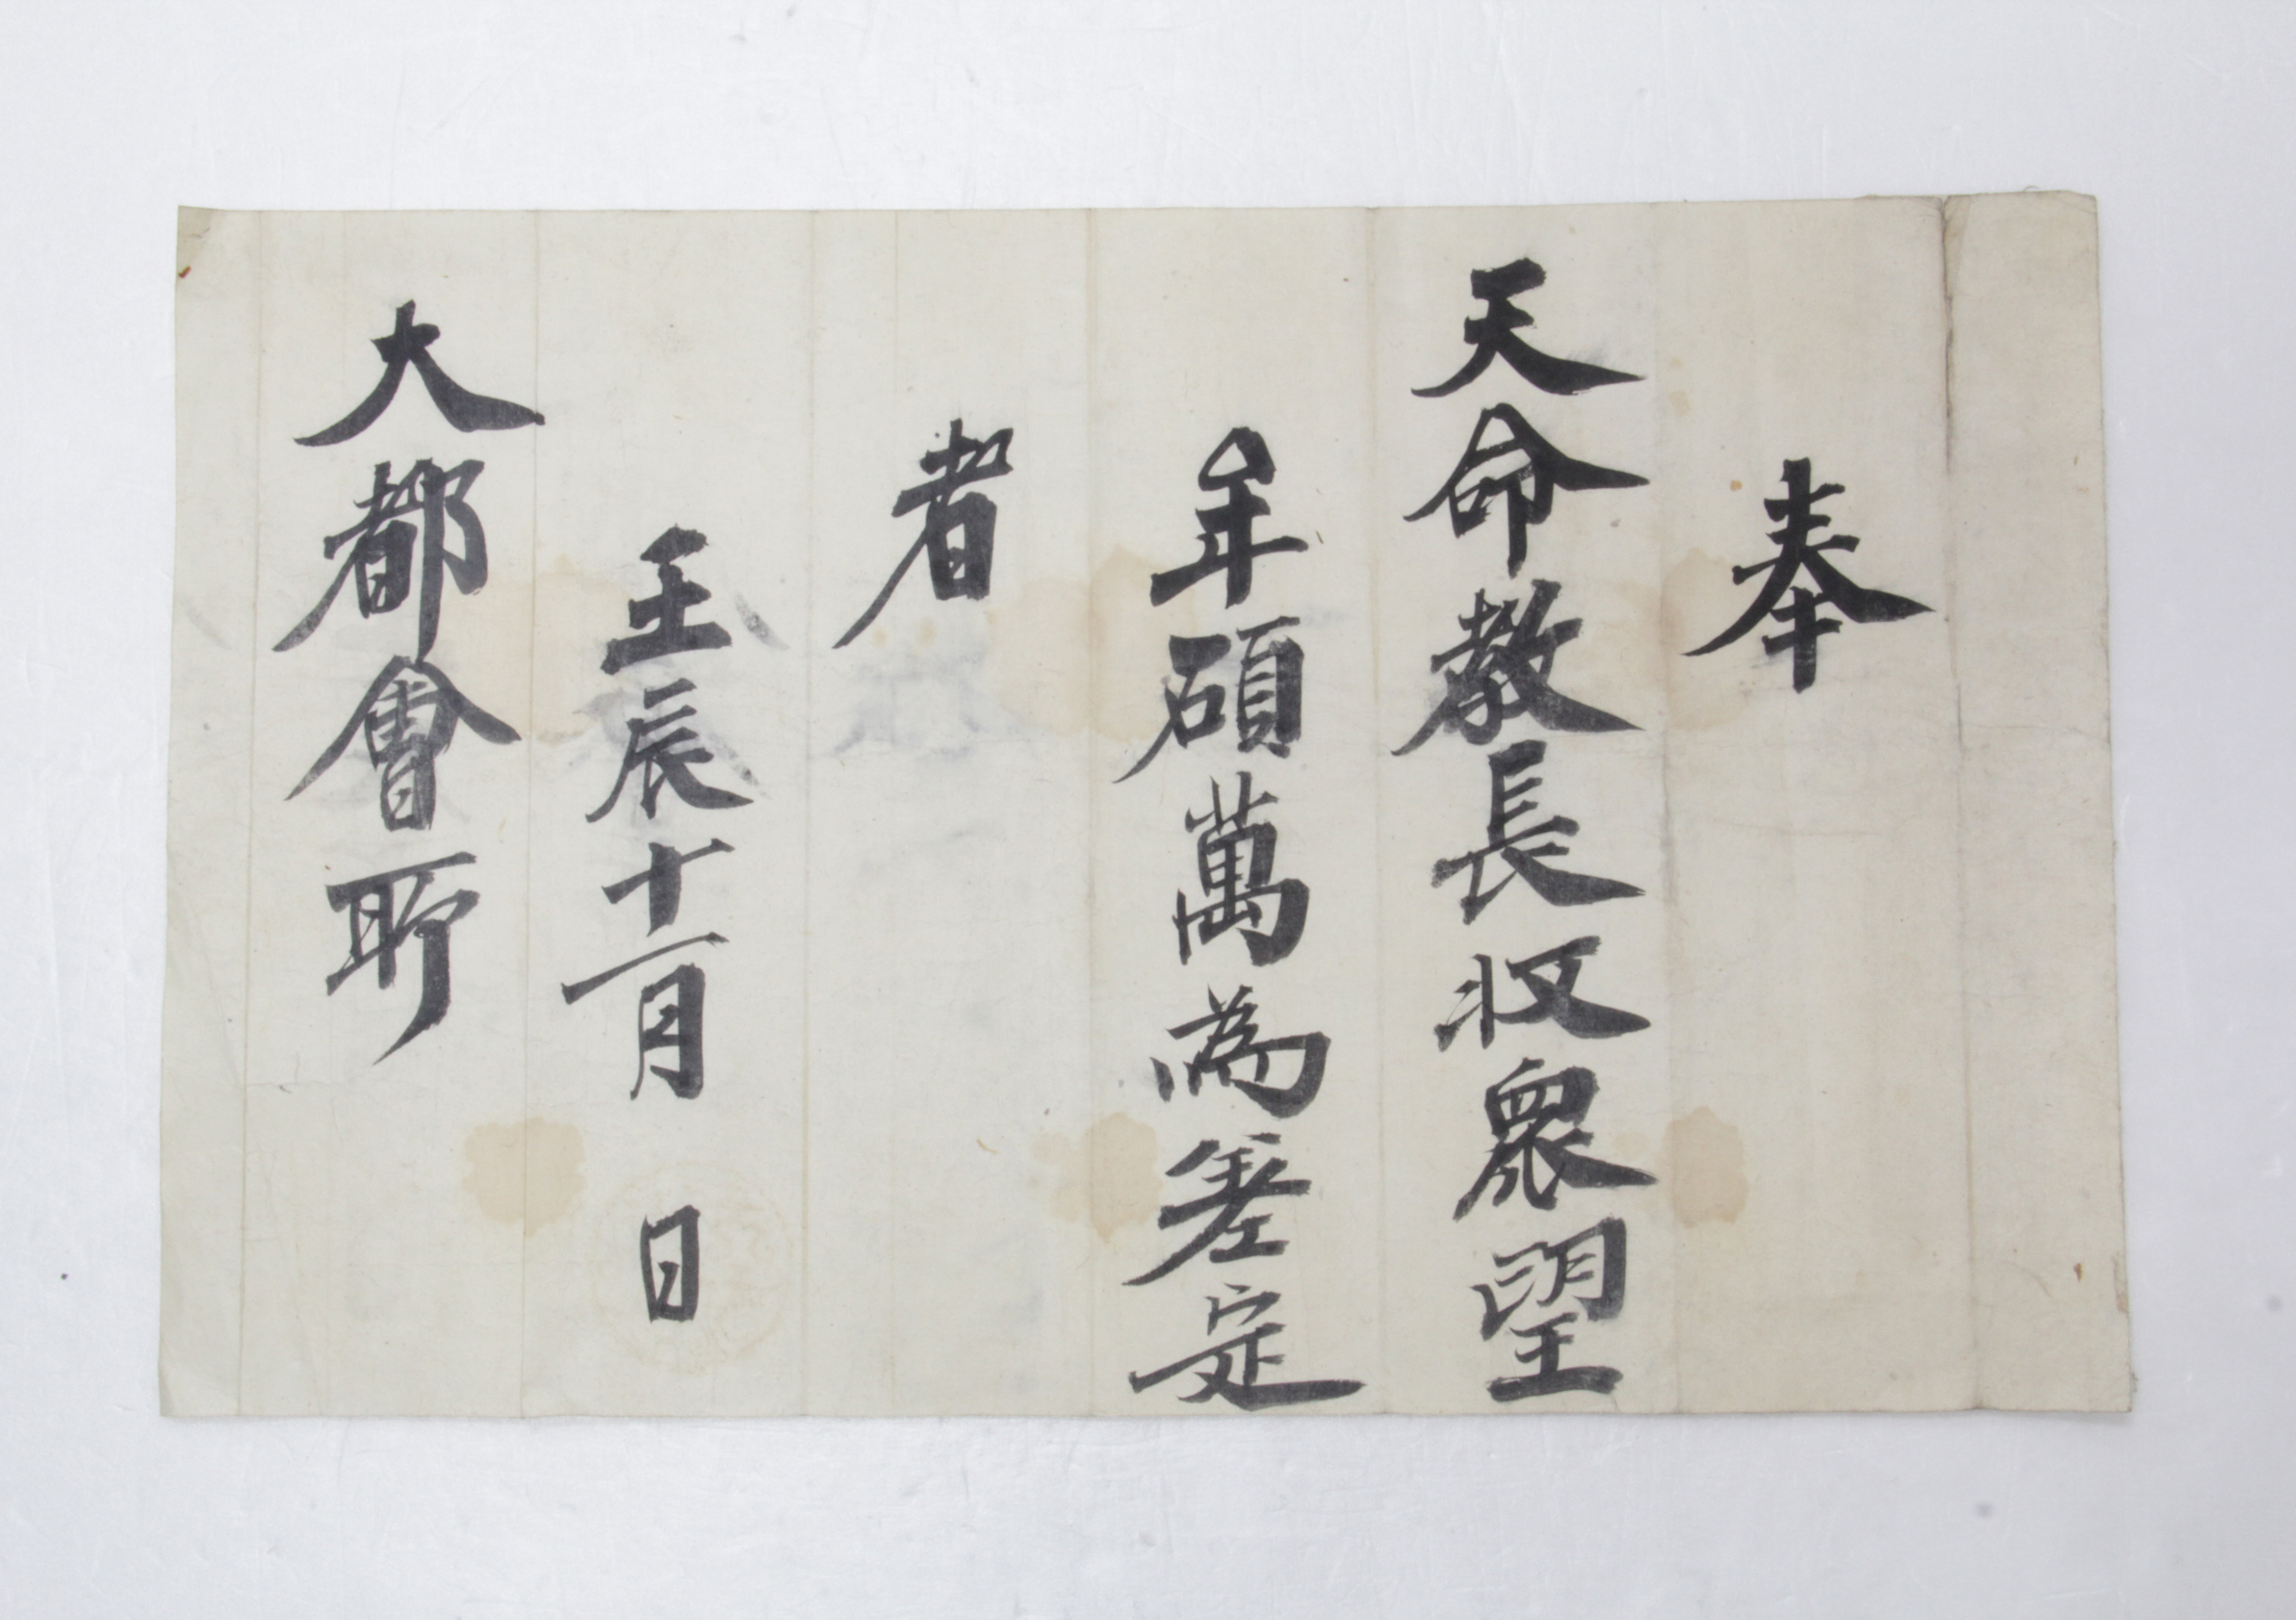 奉
天命教長收衆望
牟碩萬為差定
者
壬辰十一月 日
大都會所